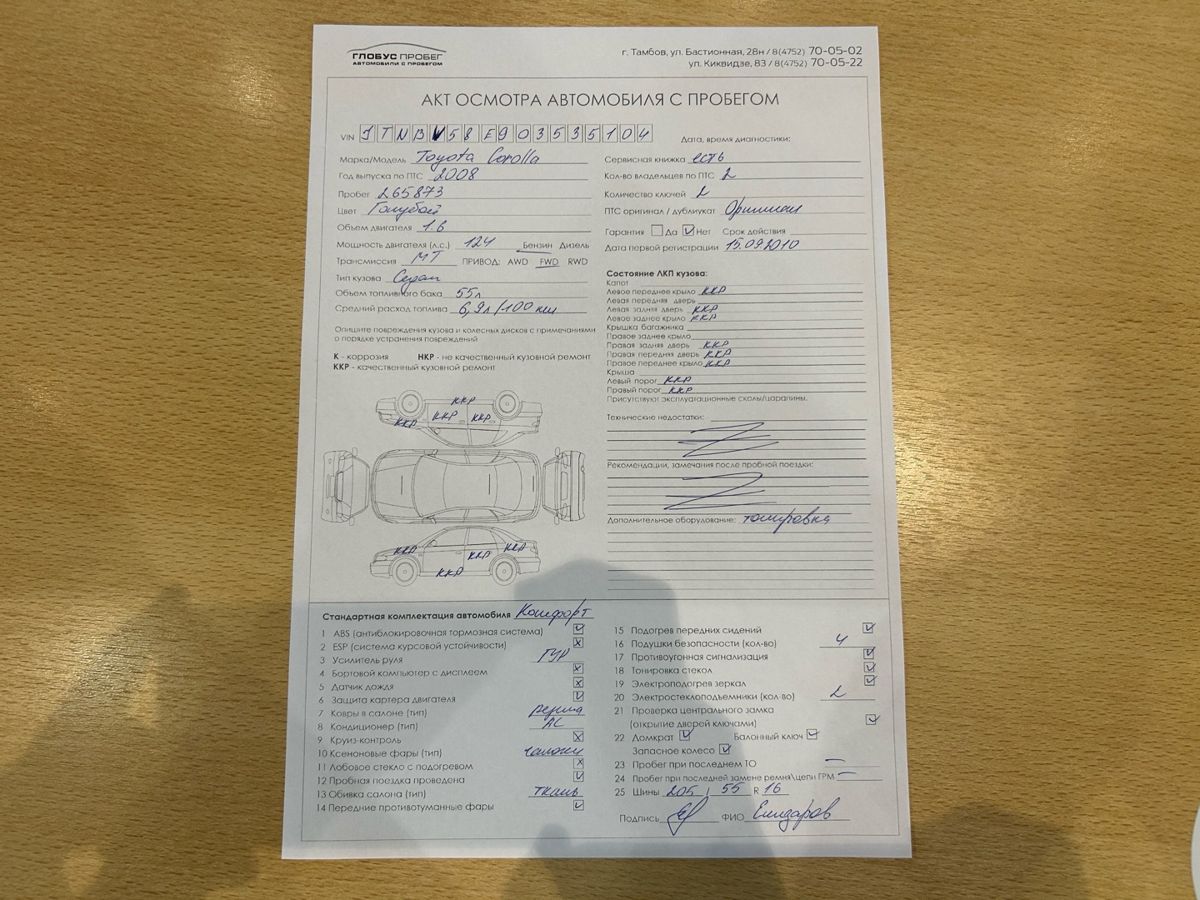 ГЛОБУС ПРОБЕГ
АВТОМОБИЛИ С ПРОБЕГОМ
г. Тамбов, ул. Бастионная, 28н / 8(4752) 70-05-02
ул. Киквидзе, 83 / 8(4752) 70-05-22
АКТ ОСМОТРА АВТОМОБИЛЯ С ПРОБЕГОМ
VIN JTNBV58E903535104
Дата, время диагностики:
Марка/Модель Toyota Corolla
Год выпуска по ПТС 2008
Пробег 265873
Цвет Голубой
Объем двигателя 1.6
Мощность двигателя (л.с.) 124 Бензин Дизель
Трансмиссия МТ ПРИВОД: AWD FWD RWD
Тип кузова Седан
Объем топливного бака 55л
Средний расход топлива 6,9л/100 км
Опишите повреждения кузова и колесных дисков с примечаниями
о порядке устранения повреждений
К - коррозия НКР - не качественный кузовной ремонт
ККР - качественный кузовной ремонт
ККР
ККР ККР ККР
ККР ККР ККР
ККР
Сервисная книжка есть
Кол-во владельцев по ПТС 2
Количество ключей 2
ПТС оригинал / дубликат Оригинал
Гарантия Да Нет Срок действия
Дата первой регистрации 15.09.2010
Состояние ЛКП кузова:
Капот
Левое переднее крыло ККР
Левая передняя дверь
Левая задняя дверь ККР
Левое заднее крыло ККР
Крышка багажника
Правое заднее крыло
Правая задняя дверь ККР
Правая передняя дверь ККР
Правое переднее крыло ККР
Крыша
Левый порог ККР
Правый порог ККР
Присутствуют эксплуатационные сколы/царапины.
Технические недостатки:
Рекомендации, замечания после пробной поездки:
Дополнительное оборудование: тонировка
Стандартная комплектация автомобиля Комфорт
1 ABS (антиблокировочная тормозная система)
2 ESP (система курсовой устойчивости)
3 Усилитель руля ГУР
4 Бортовой компьютер с дисплеем
5 Датчик дождя
6 Защита картера двигателя
7 Ковры в салоне (тип) резина
8 Кондиционер (тип) АС
9 Круиз-контроль
10 Ксеноновые фары (тип) галоген
11 Лобовое стекло с подогревом
12 Пробная поездка проведена
13 Обивка салона (тип) ткань
14 Передние противотуманные фары
15 Подогрев передних сидений
16 Подушки безопасности (кол-во) 4
17 Противоугонная сигнализация
18 Тонировка стекол
19 Электроподогрев зеркал
20 Электростеклоподъемники (кол-во) 2
21 Проверка центрального замка
(открытие дверей ключами)
22 Домкрат Балонный ключ
Запасное колесо
23 Пробег при последнем ТО —
24 Пробег при последней замене ремня\цепи ГРМ —
25 Шины 205 / 55 R 16
Подпись ФИО